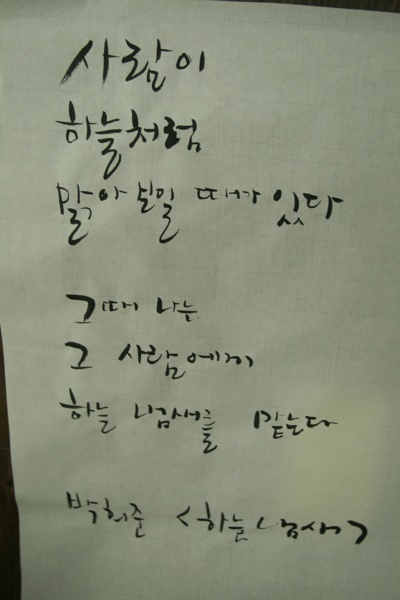 사람이
하늘처럼
맑아 보일 때가 있다
그때 나는
그 사람에게
하늘 냄새를 맡는다
박희준 <하늘냄새>